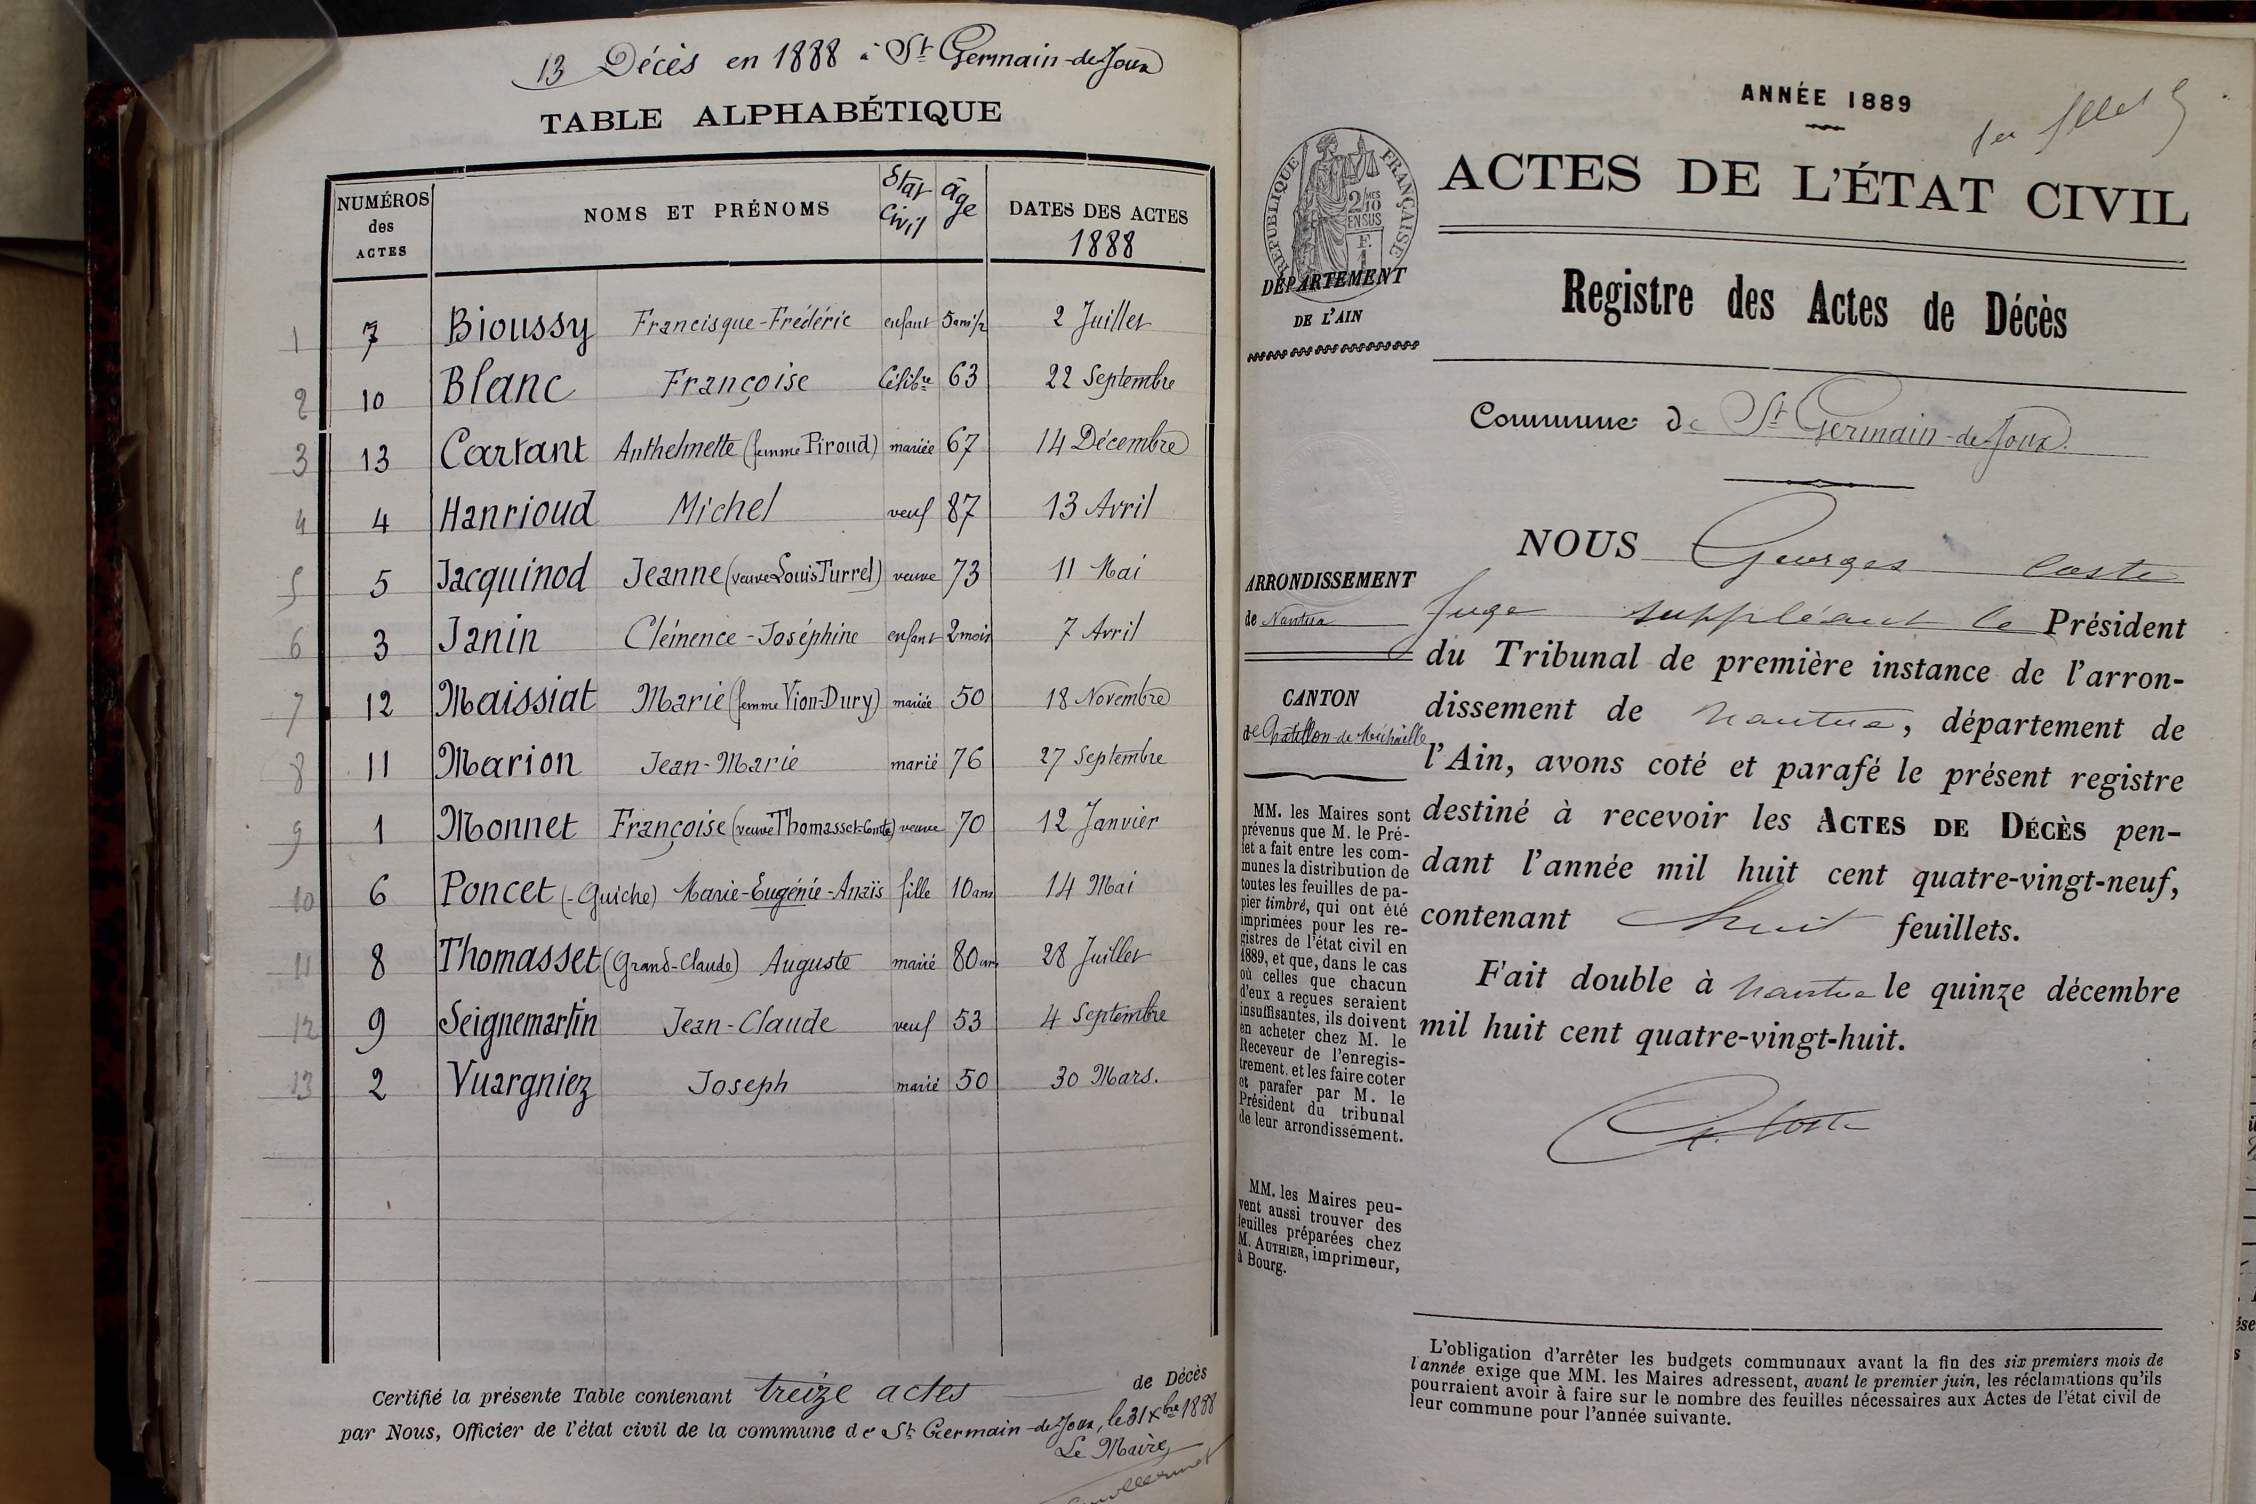 13 Décès en 1888 à St Germain-de-Joux
TABLE ALPHABÉTIQUE
NUMÉROS des ACTES NOMS ET PRÉNOMS État Civil âge DATES DES ACTES 1888
1 7 Bioussy Francisque-Frédéric enfant 5 ans 1/2 2 Juillet
2 10 Blanc Françoise Célibre 63 22 Septembre
3 13 Cartant Anthelmette (femme Piroud) mariée 67 14 Décembre
4 4 Hanrioud Michel veuf 87 13 Avril
5 5 Jacquinod Jeanne (veuve Louis Turrel) veuve 73 11 Mai
6 3 Janin Clémence-Joséphine enfant 2 mois 7 Avril
7 12 Maissiat Marie (femme Vion-Dury) mariée 50 18 Novembre
8 11 Marion Jean-Marie marié 76 27 Septembre
9 1 Monnet Françoise (veuve Thomasset-Comte) veuve 70 12 Janvier
10 6 Poncet (-Guiche) Marie-Eugénie-Anaïs fille 10 ans 14 Mai
11 8 Thomasset (Grand-Claude) Auguste marié 80 ans 28 Juillet
12 9 Seignemartin Jean-Claude veuf 53 4 Septembre
13 2 Vuargniez Joseph marié 50 30 Mars.
Certifié la présente Table contenant treize actes de Décès
par Nous, Officier de l'état civil de la commune de St Germain-de-Joux, le 31 Xbre 1888
Le Maire
ANNÉE 1889
ACTES DE L'ÉTAT CIVIL
RÉPUBLIQUE FRANÇAISE
2/10 MES
EN SUS
F.
1
DÉPARTEMENT
DE L'AIN
Registre des Actes de Décès
Commune de St Germain-de-Joux.
ARRONDISSEMENT
de Nantua
CANTON
de Chatillon-de-Michaille
MM. les Maires sont
prévenus que M. le Pré-
fet a fait entre les com-
munes la distribution de
toutes les feuilles de pa-
pier timbré, qui ont été
imprimées pour les re-
gistres de l'état civil en
1889, et que, dans le cas
où celles que chacun
d'eux a reçues seraient
insuffisantes, ils doivent
en acheter chez M. le
Receveur de l'enregis-
trement, et les faire coter
et parafer par M. le
Président du tribunal
de leur arrondissement.
MM. les Maires peu-
vent aussi trouver des
feuilles préparées chez
M. AUTHIER, imprimeur,
à Bourg.
NOUS Georges Coste
Juge suppléant le Président
du Tribunal de première instance de l'arron-
dissement de Nantua, département de
l'Ain, avons coté et parafé le présent registre
destiné à recevoir les ACTES DE DÉCÈS pen-
dant l'année mil huit cent quatre-vingt-neuf,
contenant huit feuillets.
Fait double à Nantua le quinze décembre
mil huit cent quatre-vingt-huit.
G. Coste
L'obligation d'arrêter les budgets communaux avant la fin des six premiers mois de
l'année exige que MM. les Maires adressent, avant le premier juin, les réclamations qu'ils
pourraient avoir à faire sur le nombre des feuilles nécessaires aux Actes de l'état civil de
leur commune pour l'année suivante.